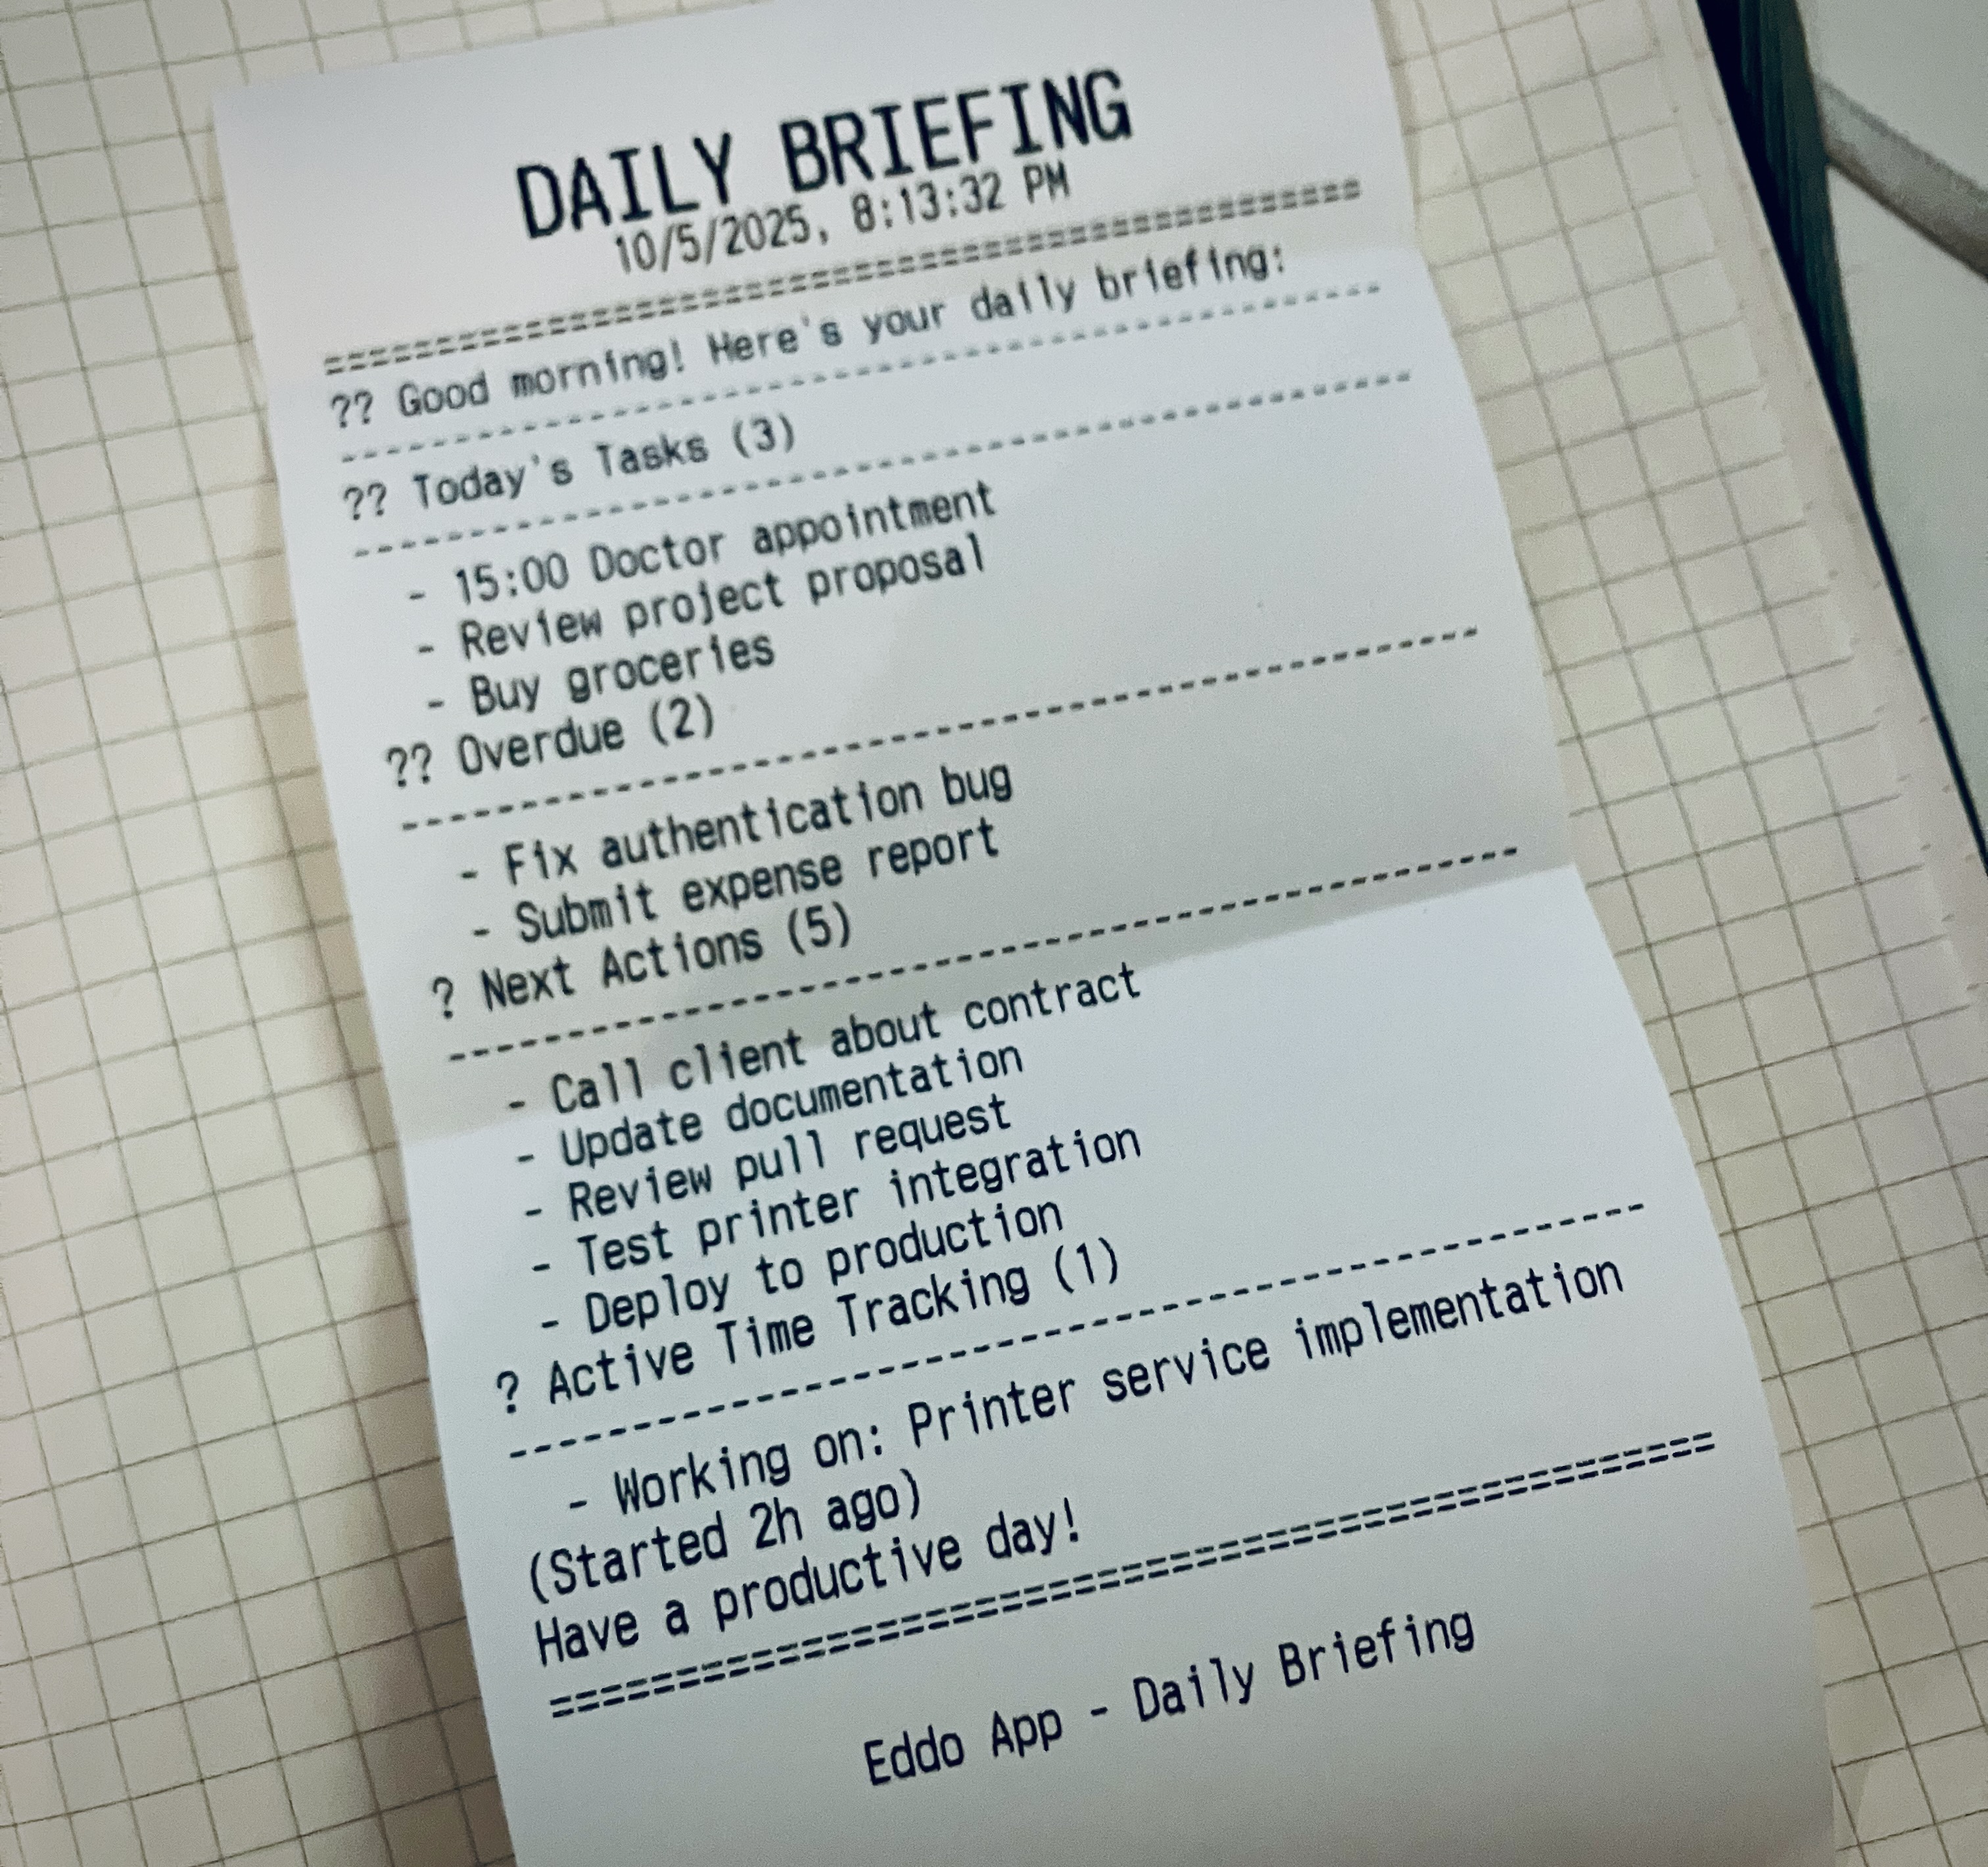 DAILY BRIEFING
10/5/2025, 8:13:32 PM
================================================
?? Good morning! Here's your daily briefing:
------------------------------------------------
?? Today's Tasks (3)
------------------------------------------------
- 15:00 Doctor appointment
- Review project proposal
- Buy groceries
?? Overdue (2)
------------------------------------------------
- Fix authentication bug
- Submit expense report
? Next Actions (5)
------------------------------------------------
- Call client about contract
- Update documentation
- Review pull request
- Test printer integration
- Deploy to production
? Active Time Tracking (1)
------------------------------------------------
- Working on: Printer service implementation
(Started 2h ago)
Have a productive day!
================================================
Eddo App - Daily Briefing